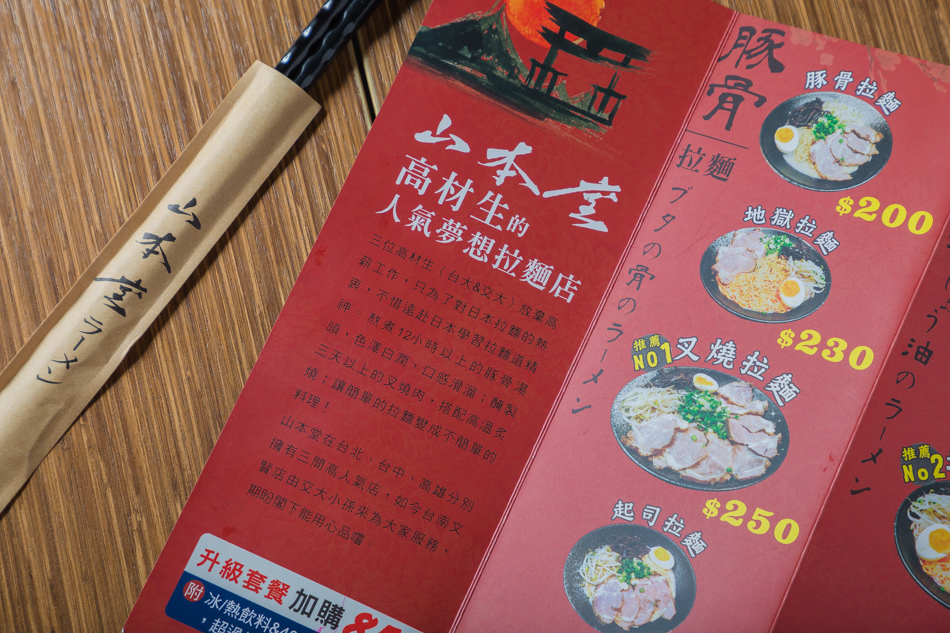 山本堂ラーメン
山本堂
高材生的
人氣夢想拉麵店
三位高材生（台大&交大）放棄高
薪工作，只為了對日本拉麵的熱
衷，不惜遠赴日本學習拉麵道精
神　熬煮12小時以上的豚骨湯
頭，色澤白潤，口感滑溜；醃製
三天以上的叉燒肉，搭配高溫炙
燒；讓簡單的拉麵變成不簡單的
料理！
山本堂在台北、台中、高雄分別
擁有三間高人氣店，如今台南文
賢店由交大小孫來為大家服務，
期盼閣下能用心品嚐
升級套餐 加購
附 冰/熱飲料&
豚骨
拉麵
ブタの骨のラーメン
豚骨拉麵
$200
地獄拉麵
$230
推薦
NO1
叉燒拉麵
$250
起司拉麵
う油のラーメン
推薦
No2